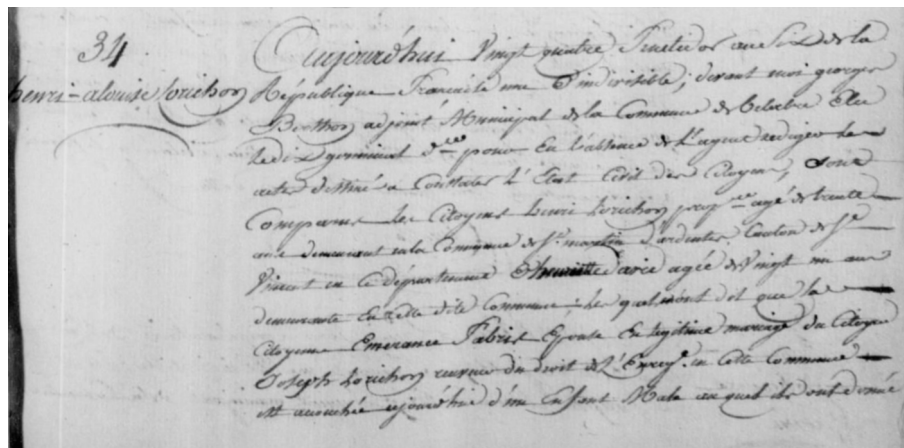 34
henri-aloise Lorichon
Aujourd'hui Vingt quatre Fructidor an Six de la
République Française une & indivisible; devant moi georges
Berthon adjoint Municipal de la Commune de belabre Elu
le dix germinal d.er pour En l'absence de l'agent rediger les
actes destinés a Constater l'Etat Civil des Citoyens, Sont
Comparus les Citoyens henri Lorichon agé de trente
ans demeurant en la Commune de St. martin d'ardentes Canton de St.
Vincent en ce département & henriette agée de Vingt un ans
demeurante En cette dite Commune; les quels m'ont dit que la
Citoyenne Emerance Fabris Epouse En légitime mariage du Citoyen
Joseph Lorichon receveur du droit de l'Enreg.t en cette Commune
est accouchée aujourd'hui d'un Enfant Male auquel ils ont donné